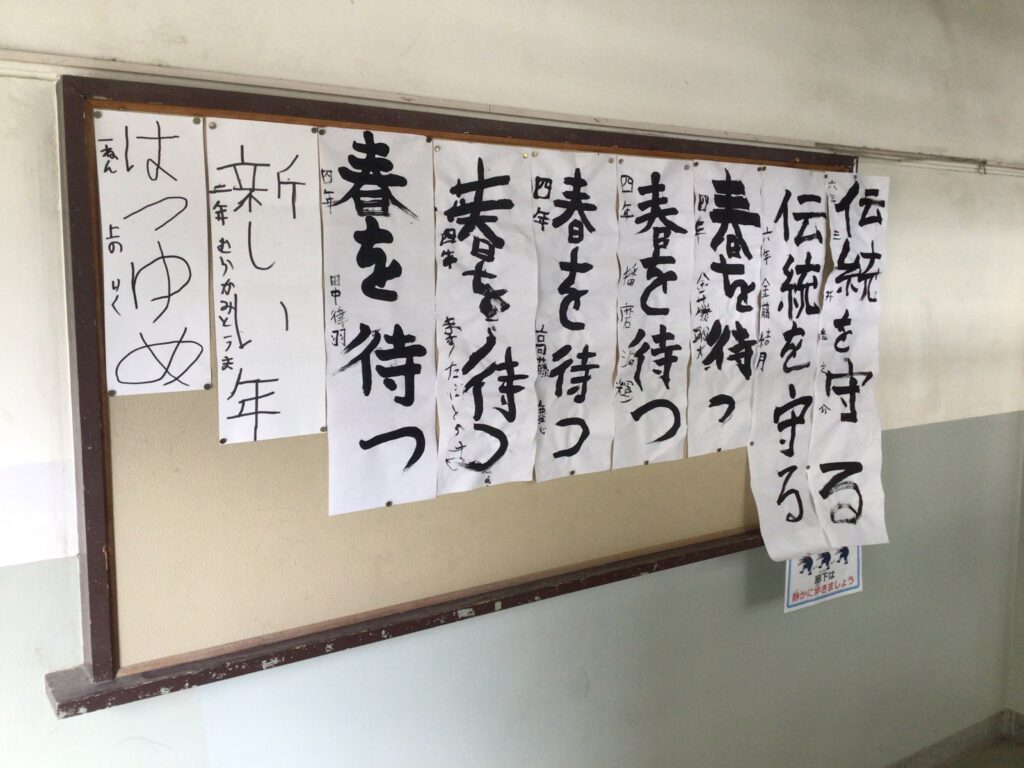 伝統を守る
六
伝統を守る
六年
結月
春を待つ
四年
春を待つ
四年
春を待つ
四年
春を待つ
四年
春を待つ
四年 田中律羽
新しい年
二年 むらかみとうま
はつゆめ
一ねん 上の りく
廊下は
静かに歩きましょう